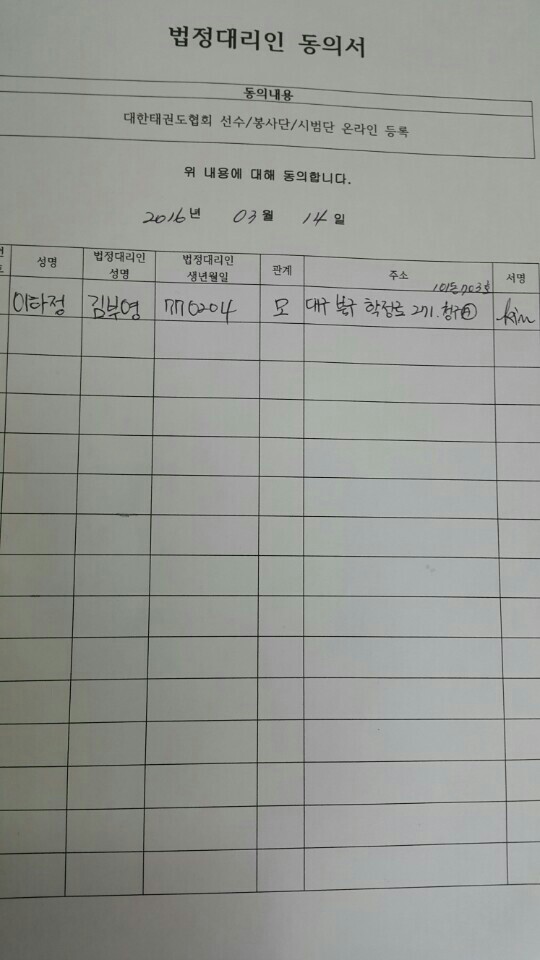 법정대리인 동의서
동의내용
대한태권도협회 선수/봉사단/시범단 온라인 등록
위 내용에 대해 동의합니다.
2016년 03월 14일
성명 법정대리인 성명 법정대리인 생년월일 관계 주소 서명
101동703호
이하정 김부영 770204 모 대구 북구 학정로 271. 청구 kim